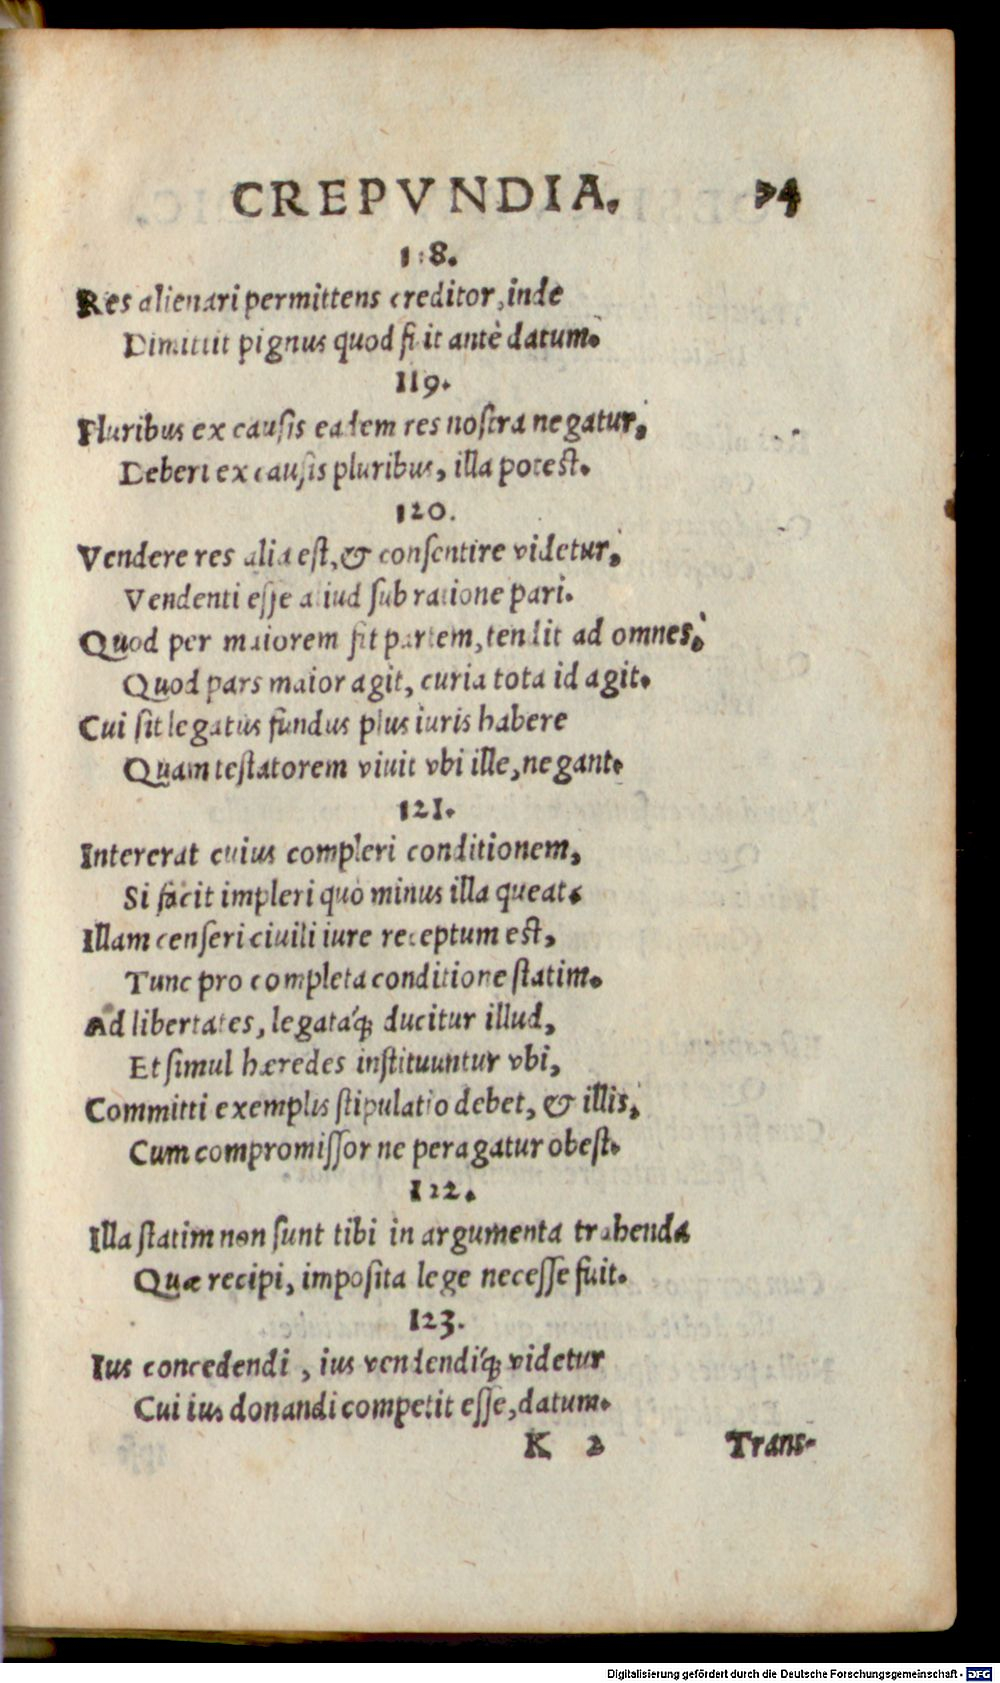 CREPVNDIA. 74
118.
Res alienari permittens creditor, inde
Dimittit pignus quod sit antè datum.
119.
Pluribus ex causis eadem res nostra negatur,
Deberi ex causis pluribus, illa potest.
120.
Vendere res alia est, & consentire videtur,
Vendenti esse aliud sub ratione pari.
Quod per maiorem fit partem, tendit ad omnes,
Quod pars maior agit, curia tota id agit.
Cui sit legatus fundus plus iuris habere
Quam testatorem viuit vbi ille, negant.
121.
Intererat cuius compleri conditionem,
Si facit impleri quo minus illa queat.
Illam censeri ciuili iure receptum est,
Tunc pro completa conditione statim.
Ad libertates, legatáq; ducitur illud,
Et simul hæredes instituuntur vbi,
Committi exemplis stipulatio debet, & illis,
Cum compromissor ne peragatur obest.
122.
Illa statim non sunt tibi in argumenta trahenda
Quæ recipi, imposita lege necesse fuit.
123.
Ius concedendi, ius vendendíq; videtur
Cui ius donandi competit esse, datum.
K 2 Trans-
Digitalisierung gefördert durch die Deutsche Forschungsgemeinschaft - DFG